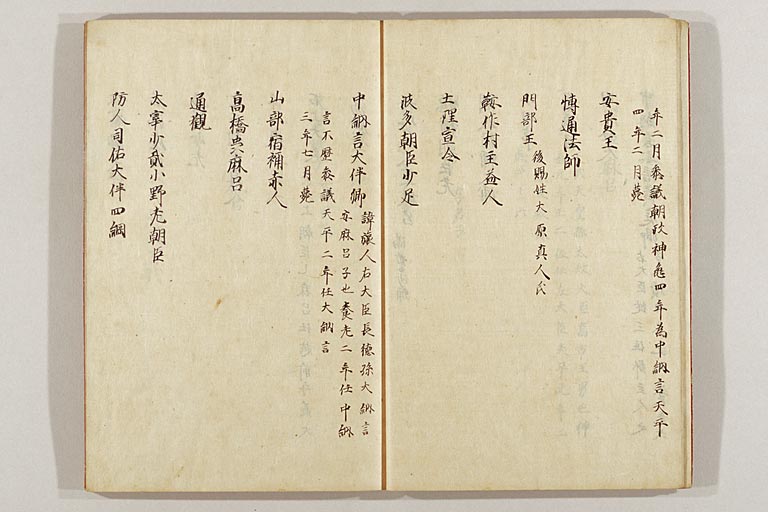 年二月叅議朝政神龜四年為中納言天平
四年二月薨
安貴王
博通法師
門部王 後賜姓大原真人氏
鞍作村主益人
土理宣令
波多朝臣少足
中納言大伴卿 諱旅人右大臣長德孫大納言
安麻呂子也養老二年任中納
言不歷叅議天平二年任大納言
三年七月薨
山部宿祢赤人
高橋虫麻呂
通觀
太宰少貳小野老朝臣
防人司佑大伴四綱